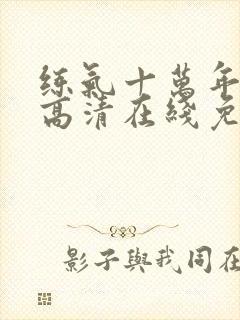 練氣十萬年
高清在綫免
影子與我同在